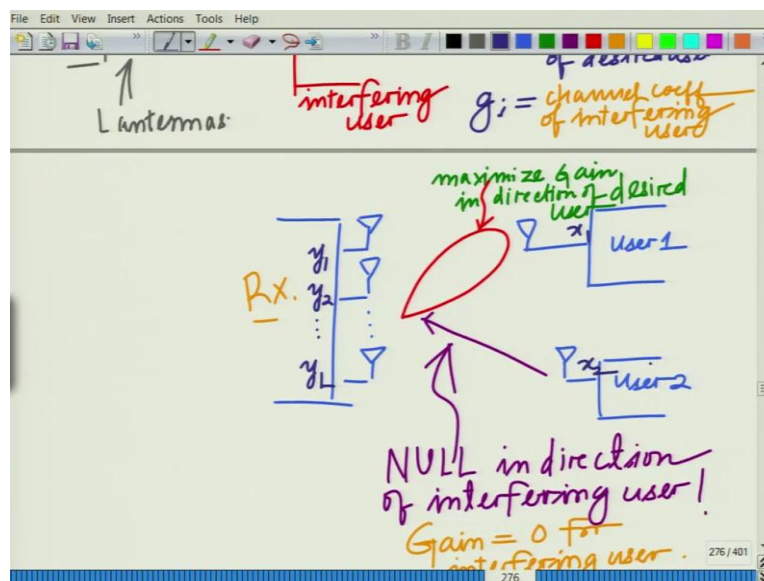 File Edit View Insert Actions Tools Help
B I
of desired user
interfering
user
L antennas.
gi = channel coeff
of interfering
user
maximize Gain
in direction of desired
user
Rx.
y1
y2
yL
x1
User 1
x2
User 2
NULL in direction
of interfering user!
Gain = 0 for
interfering user.
276 / 401
276